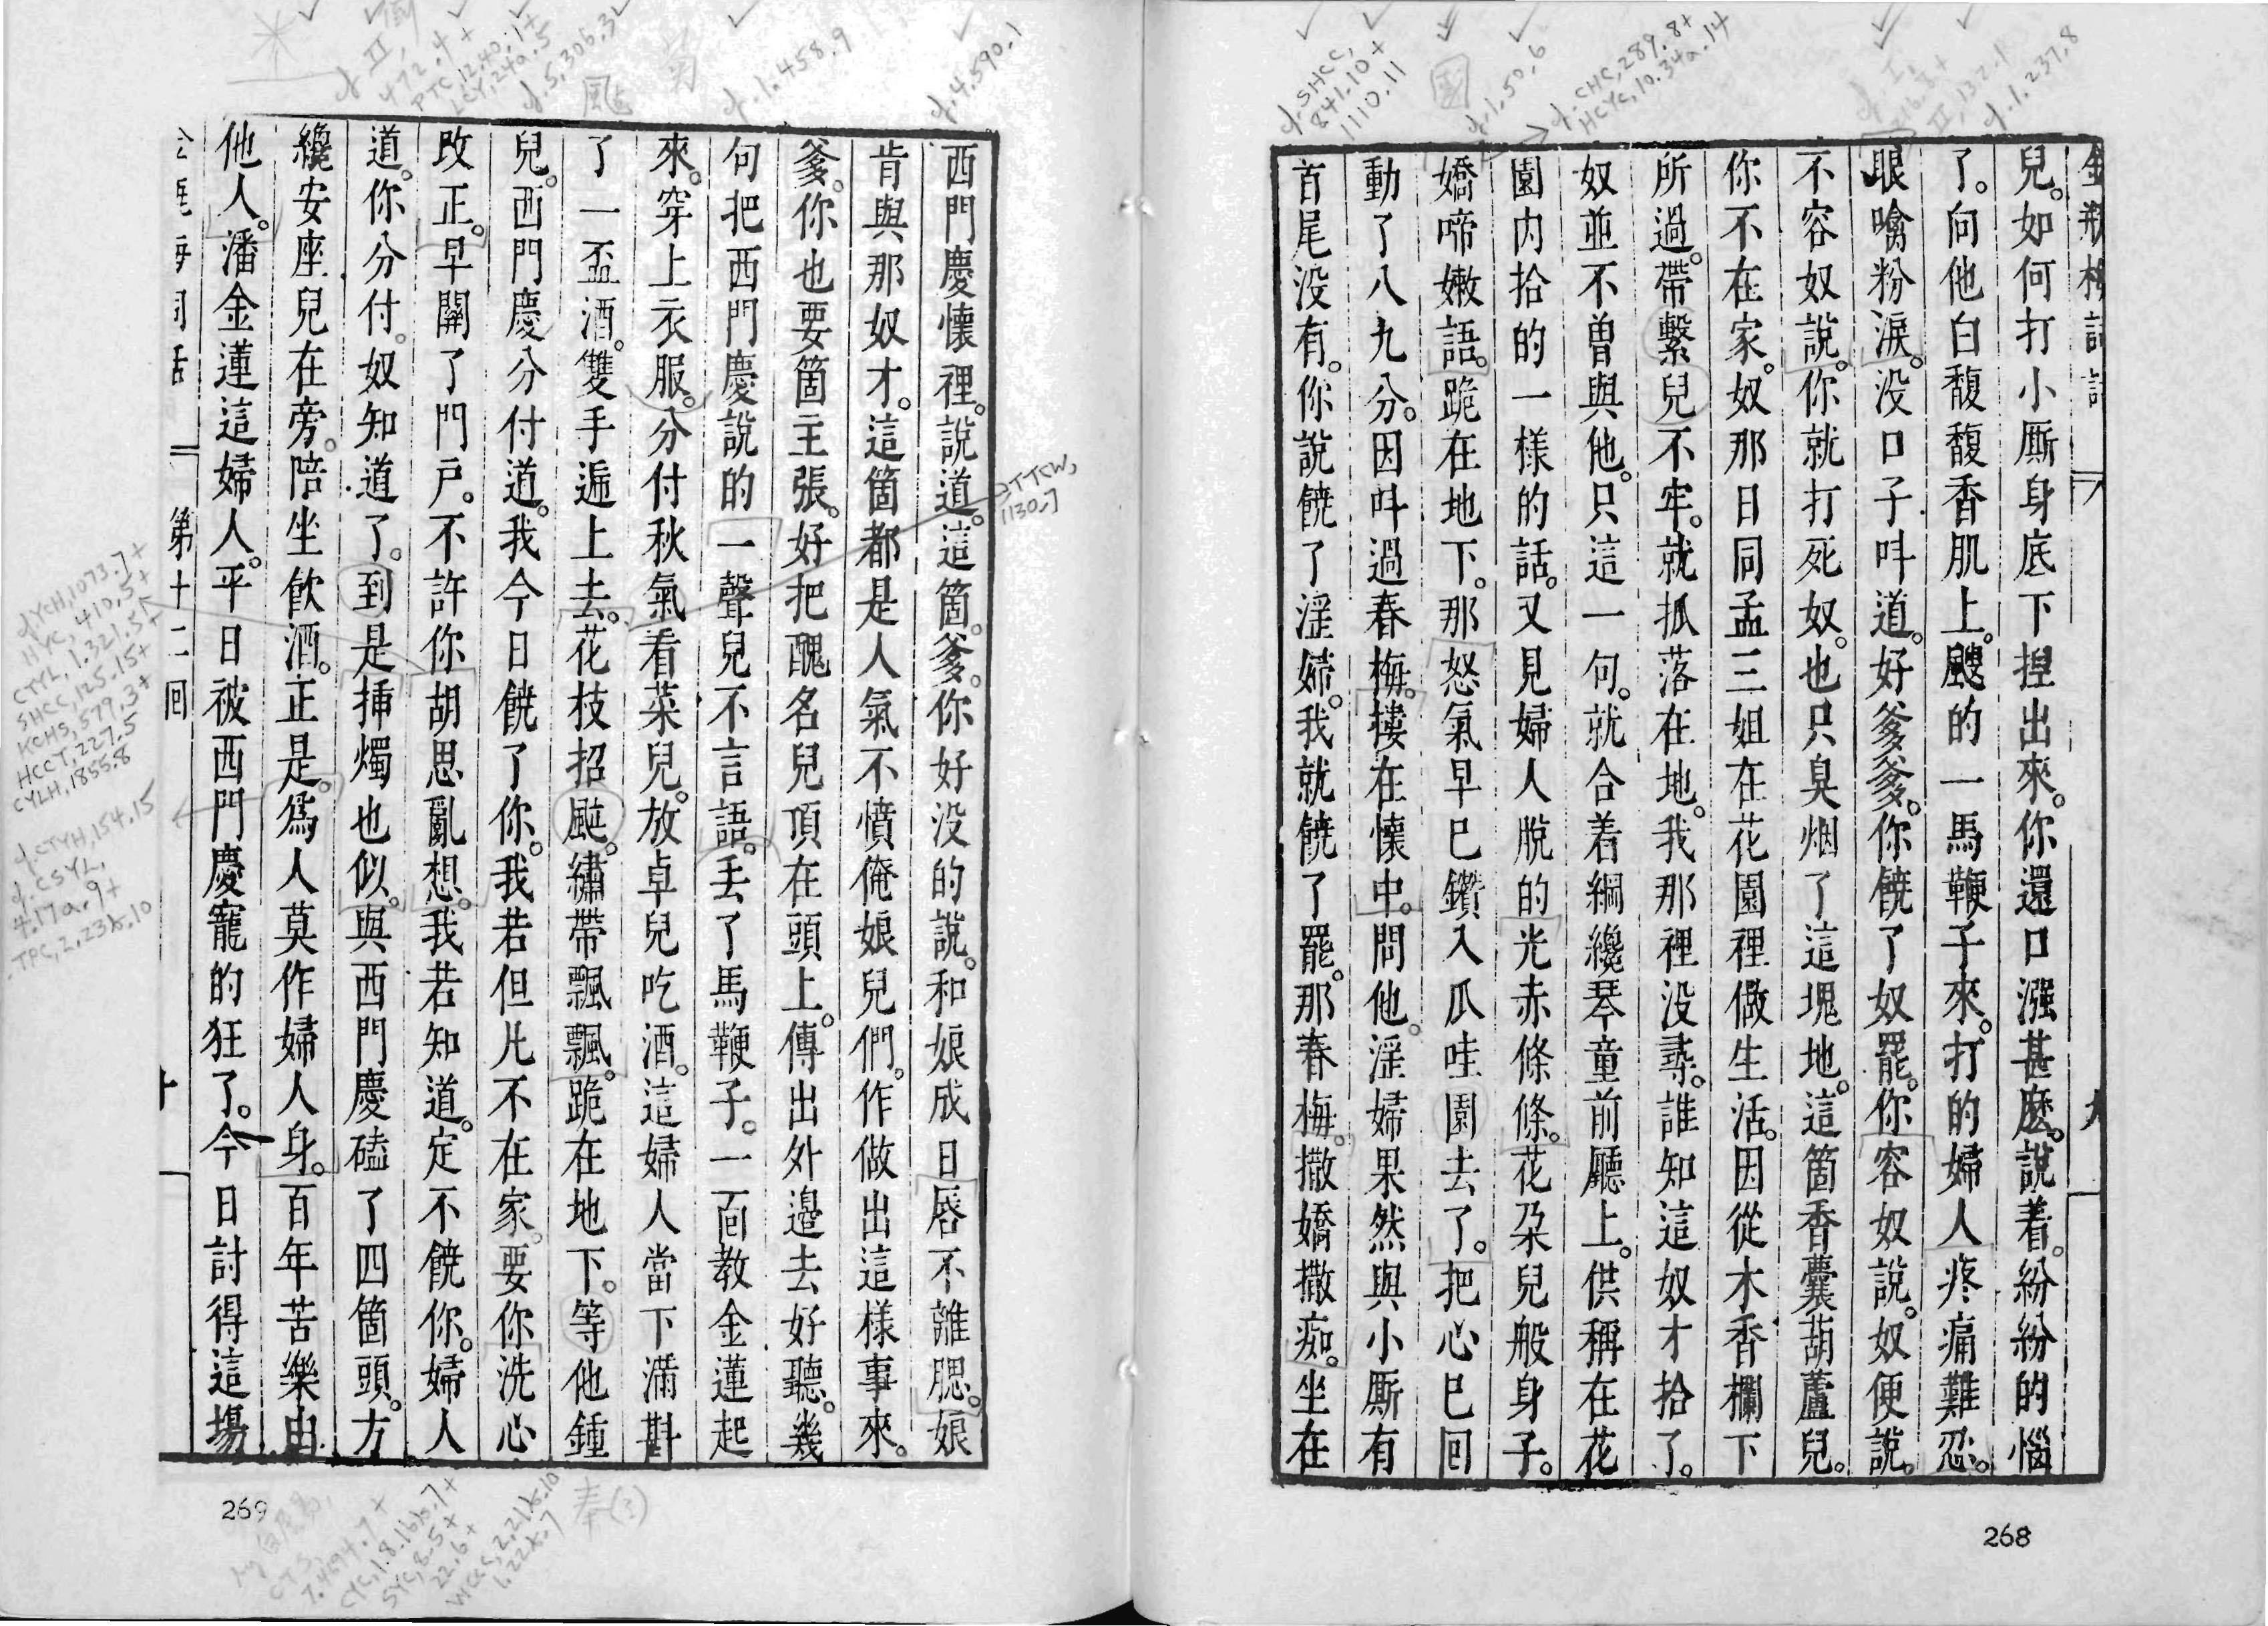 金瓶梅詞話 八 九
兒。如何打小厮身底下捏出來。你還口漒甚麽。說着。紛紛的惱
了。向他白馥馥香肌上。颼的一馬鞭子來。打的婦人疼痛難忍。
眼噙粉淚。没口子呌道。好爹爹。你饒了奴罷。你容奴說。奴便說。
不容奴說。你就打死奴。也只臭烟了這塊地。這箇香囊葫蘆兒。
你不在家。奴那日同孟三姐在花園裡做生活。因從木香欄下
所過。帶繫兒不牢。就抓落在地。我那裡没尋。誰知這奴才拾了。
奴並不曾與他。只這一句。就合着綱纔琴童前廳上。供稱在花
園内拾的一樣的話。又見婦人脫的光赤條條。花朶兒般身子。
嬌啼嫩語。跪在地下。那怒氣早已鑽入爪哇國去了。把心已回
動了八九分。因呌過春梅。摟在懷中。問他。淫婦果然與小厮有
首尾没有。你說饒了淫婦。我就饒了罷。那春梅。撒嬌撒痴。坐在
268
西門慶懷裡。說道。這箇。爹。你好没的說。和娘成日唇不離腮。娘
肯與那奴才。這箇都是人氣不憤俺娘兒們。作做出這樣事來。
爹。你也要箇主張。好把醜名兒頂在頭上。傳出外邊去好聽。幾
句把西門慶說的一聲兒不言語。丢了馬鞭子。一面教金蓮起
來。穿上衣服。分付秋氣看菜兒。放卓兒吃酒。這婦人當下滿斟
了一盃酒。雙手遞上去。花枝招颭。繡帶飄飄。跪在地下。等他鍾
兒。西門慶分付道。我今日饒了你。我若但凡不在家。要你洗心
改正。早關了門戶。不許你胡思亂想。我若知道。定不饒你。婦人
道。你分付。奴知道了。到是揷燭也似。與西門慶磕了四箇頭。方
纔安座兒在旁。陪坐飲酒。正是。爲人莫作婦人身。百年苦樂由
他人。潘金蓮這婦人。平日被西門慶寵的狂了。今日討得這場
第十二回 十
269
cf. 4.590.1
cf. 1.458.9
cf. 5.306.3
cf. 1.50.6
cf. 1.237.8
cf. SHCC, 841.10+
1110.11
cf. CHC, 289.8+
HCYC, 10.34a.14
TTCW, 1130.7
cf. YCH, 1073.7+
HYC, 410.5+
CTYL, 1.321.5
SHCC, 125.15+
KCHS, 579.3+
HCCT, 227.5
CYLH, 1855.8
cf. CTYH, 154.15
cf. CSYL,
4.17a.9+
TPC, 2.23b.10